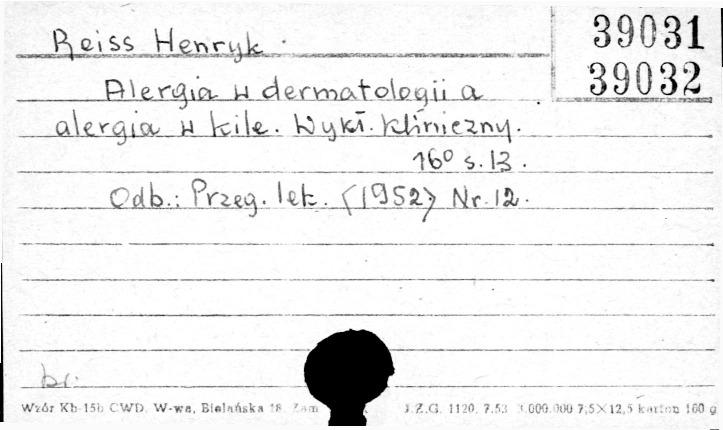 Reiss Henryk.
39031
39032
Alergia w dermatologii a
alergia w kile. Wykł. kliniczny.
16° s. 13.
Odb.: Przeg. lek. (1952) Nr. 12.
br.
Wzór Kb-15b CWD. W-wa, Bielańska 18. Zam J.Z.G. 1120. 7.53 3.000.000 7,5×12,5 karton 160 g